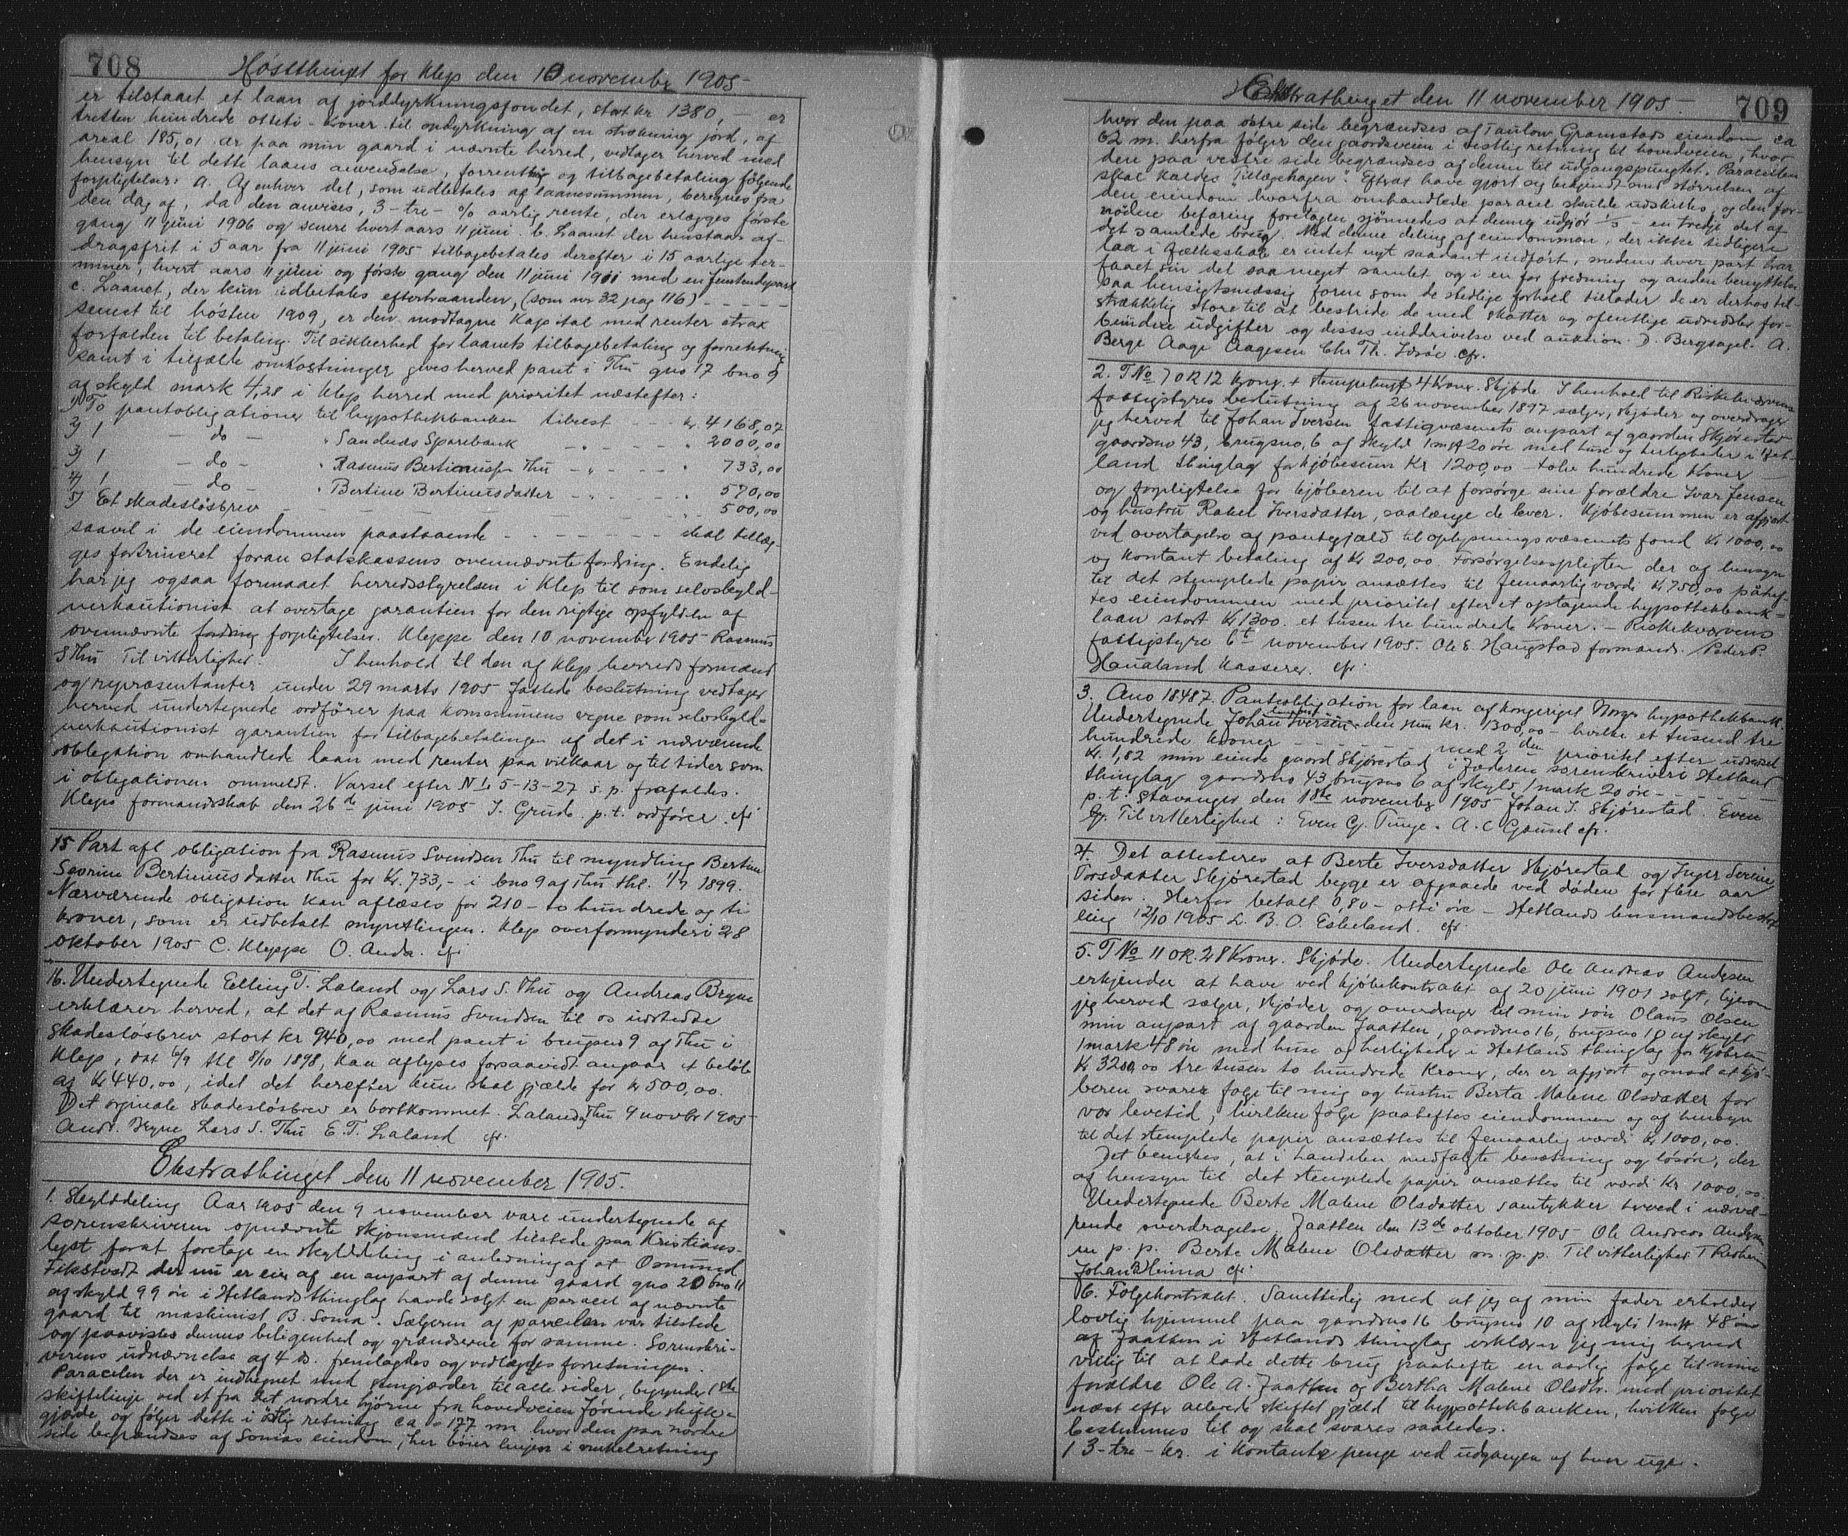 708
Høstthinget for Klep den 10 november 1905 -
er tilstaaet et laan af jorddyrkningsfondet, stort kr 1380, - er
tretten hundrede otteti - kroner til opdyrkning af en strækning jord, af
areal 185,01 ar paa min gaard i nævnte herred, vedtager herved med
hensyn til dette laans anvendelse, forrentning og tilbagebetaling følgende
forpligtelser: A. Af enhver del, som udbetales af laanesummen, beregnes fra
den dag af, da den anvises, 3 - tre - % aarlig rente, der erlægges første
gang 11 juni 1906 og senere hvert aars 11 juni. b. Laanet der henstaar af-
dragsfrit i 5 aar fra 11 juni 1905 tilbagebetales derefter i 15 aarlige ter-
miner, hvert aars 11 juni og første gang den 11 juni 1911 med en femtendepart
c. Laanet, der kun udbetales efterhaanden, (som nr 32 pag 116) - - - - -
senest til høsten 1909, er den modtagne kapital med renter strax
forfalden til betaling. Til sikkerhed for laanets tilbagebetaling og forrentning
samt i tilfælde omkostninger gives herved pant i Thu gno 17 bno 9
af skyld mark 4,28 i Klep herred med prioritet næstefter:
1) To pantobligationer til hypothekbanken tilrest - - - kr. 4168,07
2) 1 - do - " Sandnes Sparebank - " - " 2000,00
3) 1 - do - " Rasmus Bertinussøn Thu - " - " 733,00
4) 1 - do - " Bertine Bertinusdatter - - - " 570,00
5) Et skadesløsbrev - - - - - - - - " 500,00
saavil i de eiendommen paastaaende - - - - - - - skal tillæg-
ges fortrinsret foran statskassens ovennævnte fordring. Endelig
har jeg ogsaa formaaet herredsstyrelsen i Klep til som selvskyld-
nerkautionist at overtage garantien for den rigtige opfyldelse af
ovennævnte forpligtelser. Kleppe den 10 november 1905 Rasmus
S Thu Til vitterlighed: I henhold til den af Klep herreds formænd
og repræsentanter under 29 marts 1905 fattede beslutning vedtager
herved undertegnede ordfører paa kommunens vegne som selvskyld-
nerkautionist garantien for tilbagebetalingen af det i nærværende
obligation omhandlede laan med renter paa vilkaar og til tider som
i obligationen ommeldt. Varsel efter NL 5-13-27 s.p. frafaldes.
Kleps formandsskab den 26de juni 1905 J. Grude p.t. ordfører. cfr
15 Part afl obligation fra Rasmus Svendsen Thu til myndling Bertine
Severine Bertinusdatter Thu for Kr. 733,- i bno 9 af Thu thl. 1/7 1899.
Nærværende obligation kan aflæses for 210 - to hundrede og ti
kroner, som er udbetalt myndlingen. Klep overformynderi 28
oktober 1905 C. Kleppe O. Anda. cfr
16. Undertegnede Elling T. Laland og Lars S. Thu og Andreas Bryne
erklærer herved, at det af Rasmus Svendsen til os udstedte
skadesløsbrev stort kr 940,00 med pant i brugsno 9 af Thu i
Klep, dat 6/9 thl 8/10 1898, kan aflyses forsaavidt angaar et beløb
af Kr 440,00, idet det herefter kun skal gjælde for kr 500,00.
Det orginale skadesløsbrev er bortkommet. Laland, Thu 9 novbr 1905
Andr. Bryne Lars S. Thu E. T. Laland cfr.
Ekstrathinget den 11 november 1905.
1. Skylddeling Aar 1905 den 9 november vare undertegnede af
sorenskriveren opnævnte skjønsmænd tilstede paa Kristians-
lyst forat foretage en skylddeling i anledning af at Osmund
der nu er eier af en anpart af denne gaard gno 20 bno 11
af skyld 99 øre i Hetlands thinglag havde solgt en parcel af nævnte
gaard til maskinist B. Soma. Sælgeren af parcelen var tilstede
og paavistes dennes beligenhed og grændserne for samme. Sorenskri-
verens udnævnelse af 4 ds. fremlagdes og vedlægges forretningen.
Parcelen der er indhegnet med stengjærder til alle sider, begynder 1ste
skiftelinje ved et fra det nordre hjørne fra hovedveien førende skifte-
gjærde og følger dette i østlig retning ca 177 m hvor den paa nordre
side begrændses af Somas eiendom, her bøier linjen i vinkelretning
Ekstrathinget den 11 november 1905 -
709
hvor den paa østre side begrændses af Taulow Gramstads eiendom ca
62 m. herfra følger den gaardsveien i vestlig retning til hovedveien, hvor
den paa vestre side begrændses af denne til udgangspunktet. Parcelen
skal kaldes "Tillægshagen". Eftrat have gjort sig bekjendt med størrelsen af
den eiendom hvorfra omhandlede parcel skulde udskilles, og den for-
nødne befaring foretagen, skjønnedes at denne udgjør 1/3 - en tredje del af
det samlede brug. Med denne deling af eiendommen, der ikke tidligere
laa i fælleskab er intet nyt saadant indført, medens hver part har
faaet sin del saa meget samlet og i en for fredning og anden benyttelse
saa hensigtsmæssig form som de stedlige forhold tillader de er derhos til-
strækkelig store til at bestride de med skatter og ofentlige udredsler for-
bundne udgifter og disses inddrivelse ved auktion. D. Bergsagel. A.
Berge Aage Aagesen Chr Th. Idsøe cfr.
2. T No 7 OR 12 Kroner + stempelmrk 4 Kroner. Skjøde. I henhold til Riskekværvens
fattigstyres beslutning af 26 november 1897 sælger, skjøder og overdrager
jeg herved til Johan Iversen fattigvæsenets anpart af gaarden Skjørestad
gaardsno 43, brugsno, 6 af skyld 1 mrk 20 øre med huse og herligheder i Het-
land thinglag for kjøbesum Kr 1200,00 - tolv hundrede Kroner -
og forpligtelse for kjøberen til at forsørge sine forældre Ivar Jensen
og hustru Rakel Iversdatter, saalænge de lever. Kjøbesummen er afgjort
ved overtagelse af pantegjæld til oplysningsvæsenets fond Kr 1000,00
og kontant betaling af Kr 200,00 Forsørgelsespligten der af hensyn
til det stemplede papir ansættes til femaarlig værdi Kr 750,00 paahef-
tes eiendommen med prioritet efter et optagende hypothekbank-
laan stort Kr 1300. et tusen tre hundrede Kroner. - Riskekværvens
fattigstyre 6te november 1905. Ole E. Haugstad formand. Peder P.
Haualand Kasserer. cfr.
3. Ano 18487. Pantobligation for laan af kongeriget Norges hypothekbank.
Undertegnede Johan Iversen - den sum kr. 1300,00 - hvilke et tusend tre
hundrede kroner - - - - - - med 2den prioritet efter udsædsel
Kr. 1,82 min eiende gaard Skjørestad i Jæderens sorenskriveri Hetland
thinglag gaardsno 43 brugsno 6 af skyld 1 mark 20 øre - - - - - -
p. t. Stavanger den 18de november 1905 Johan I. Skjørestad. Even
G. Til vitterlighed: Even G. Tunge. A. C Gausel cfr.
4. Det attesteres at Berte Iversdatter Skjørestad og Inger Serene
Torsdatter Skjørestad begge er afgaaede ved døden for flere aar
siden. Herfor betalt 0,80 - otti øre - Hetlands lensmandsbestil-
ling 12/10 1905 L. B. O. Eskeland. cfr.
5. T No 11 OR 28 Kroner. Skjøde. Undertegnede Ole Andreas Andersen
erkjender at have ved kjøbekontrakt af 20 juni 1901 solgt, ligesom
jeg herved sælger, skjøder, og overdrager til min søn Olaus Olsen
min anpart af gaarden Jaatten, gaardsno 16, brugsno 10 af skyld
1 mark 48 øre med huse og herligheder i Hetland thinglag for kjøbesum
Kr 3200,00 tre tusen to hundrede Kroner, der er afgjort og mod at kjø-
beren svarer følge til mig og hustru Berta Malene Olsdatter for
vor levetid, hvilken følge paaheftes eiendommen og af hensyn
til det stemplede papir ansættes til femaarlig værdi Kr 1000,00.
Det bemerkes, at i handelen medfølgte besætning og løsøre, der
af hensyn til det stemplede papir ansættes til værdi Kr 1000,00.
Undertegnede Berte Malene Olsdatter samtykker herved i nærvæ-
rende overdragelse. Jaatten den 13de oktober 1905 Ole Andreas Andersen
m p. p. Berte Malene Olsdatter m. p. p. Til vitterlighed: T
Johan Hinna cfr.
6. Følgekontrakt. Samtidig med at jeg af min fader erholder
lovlig hjemmel paa gaardsno 16 brugsno 10 af skyld 1 mrk 48 øre
af Jaatten i Hetlands thinglag erklærer jeg mig herved
villig til at lade dette brug paahefte en aarlig følge til mine
forældre Ole A. Jaatten og Bertha Malene Olsdtr. med prioritet
næst efter allerede skiftet gjæld til hypothekbanken, hvilken følge
bestemmes til og skal svares saaledes.
1 3 - tre - kr. i kontante penge ved udgangen af hver uge.